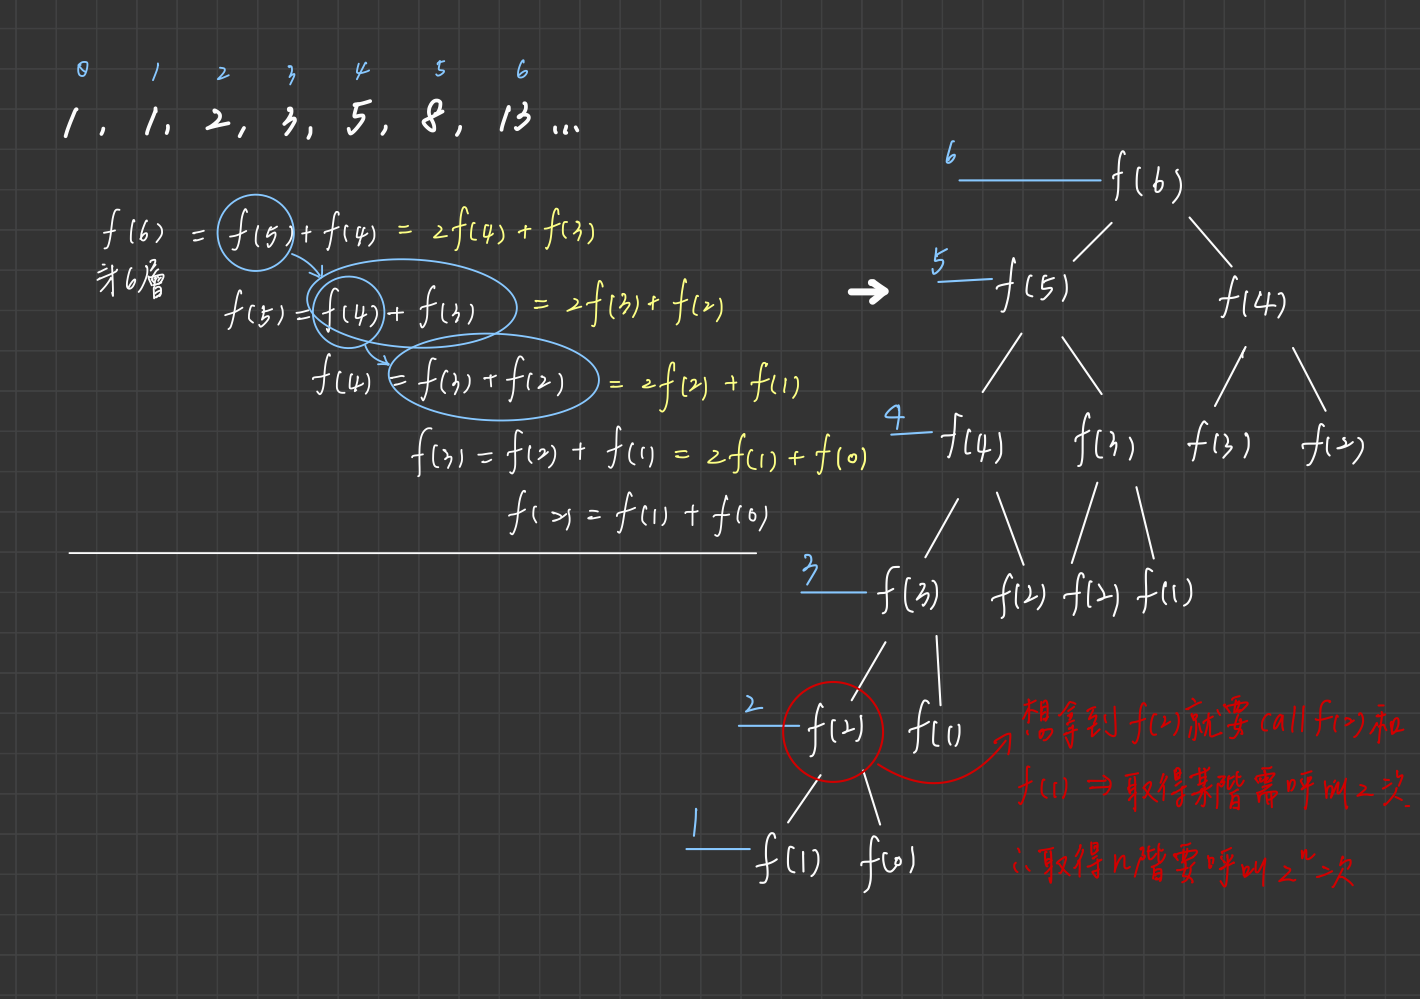 0 1 2 3 4 5 6
1, 1, 2, 3, 5, 8, 13 ...
f(6) = f(5) + f(4) = 2f(4) + f(3)
共6層
f(5) = f(4) + f(3) = 2f(3) + f(2)
f(4) = f(3) + f(2) = 2f(2) + f(1)
f(3) = f(2) + f(1) = 2f(1) + f(0)
f(2) = f(1) + f(0)
6 f(6)
5 f(5) f(4)
4 f(4) f(3) f(3) f(2)
3 f(3) f(2) f(2) f(1)
2 f(2) f(1)
1 f(1) f(0)
想拿到 f(2) 就要 call f(2) 和
f(1) ⇒ 取得某階需呼叫 2 次
∴ 取得 n 階要呼叫 2ⁿ 次